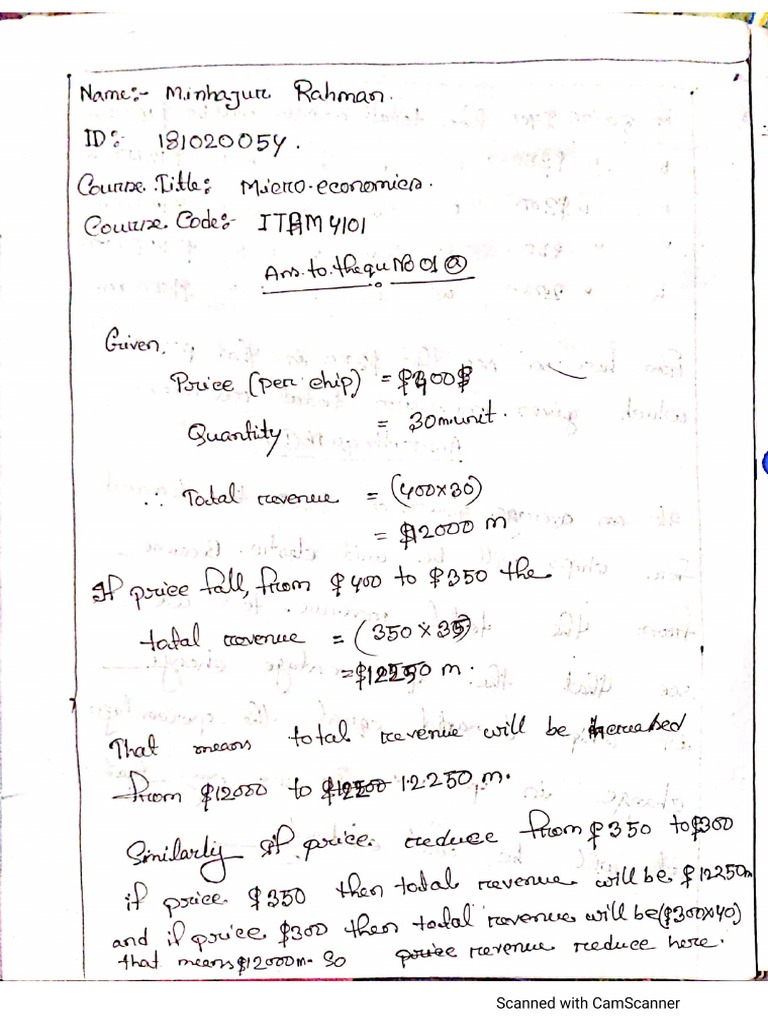 Name:- Minhajur Rahman.
ID:- 181020054.
Course Title: Micro-economics.
Course Code:- ITHM 4101
Ans. to. the qu NO 01 (a)
Given,
Price (per chip) = $400
Quantity = 30m.unit.
∴ Total revenue = (400×30)
= $12000 m
If price fall, from $400 to $350 the
total revenue = (350×35)
= $12250 m.
That means total revenue will be increased
from $12000 to 12250 m.
Similarly if price reduce from $350 to $300
if price $350 then total revenue will be $12250m
and if price $300 then total revenue will be ($300×40)
that means $12000m. So revenue reduce here.
Scanned with CamScanner